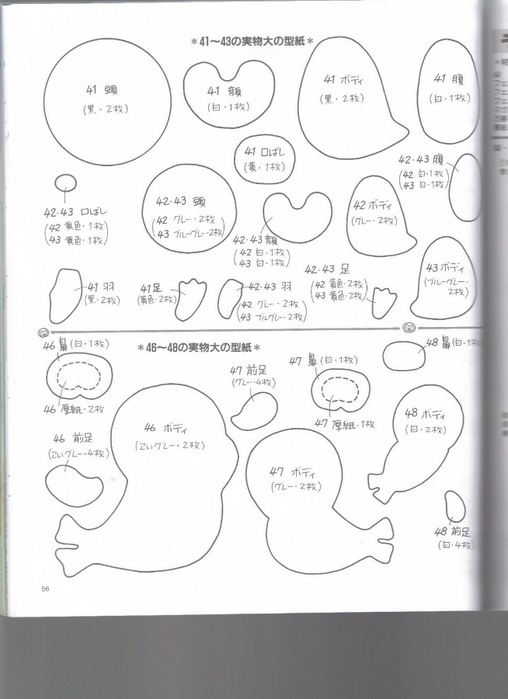 *41〜43の実物大の型紙*
41 頭
(黒・2枚)
41 顔
(白・1枚)
41 ボディ
(黒・2枚)
41 腹
(白・1枚)
41 口ばし
(黄・1枚)
42・43 腹
(42 白・1枚)
(43 白・1枚)
42・43 口ばし
(42 黄色・1枚)
(43 黄色・1枚)
42・43 頭
(42 グレー・2枚)
(43 ブルーグレー・2枚)
42・43 顔
(42 白・1枚)
(43 白・1枚)
42 ボディ
(グレー・2枚)
43 ボディ
(ブルーグレー・2枚)
41 羽
(黒・2枚)
41 足
(黄色・2枚)
42・43 羽
(42 グレー・2枚)
(43 ブルグレー・2枚)
42・43 足
(42 黄色・2枚)
(43 黄色・2枚)
*46〜48の実物大の型紙*
46 鼻(白・1枚)
46 厚紙・2枚
46 前足
(こいグレー・4枚)
46 ボディ
(こいグレー・2枚)
47 前足
(グレー・4枚)
47 鼻(白・1枚)
47 厚紙・1枚
47 ボディ
(グレー・2枚)
48 鼻(白・1枚)
48 ボディ
(白・2枚)
48 前足
(白・4枚)
56